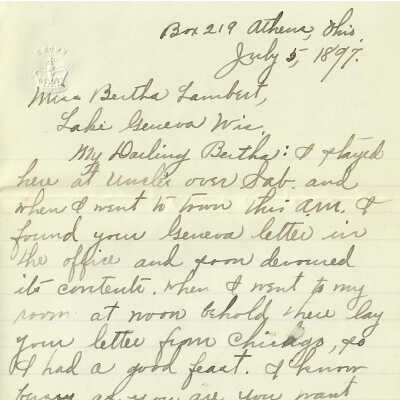 Box 219 Athens, Ohio,
July 5, 1897.
Miss Bertha Lambert,
Lake Geneva Wis.
My Darling Bertha: I stayed
here at Uncles over Sab. and
when I went to town this am. I
found your Geneva letter in
the office and soon devoured
its contents. When I went to my
room at noon behold there lay
your letter from Chicago, so
I had a good feast. I know
busy as you are you want